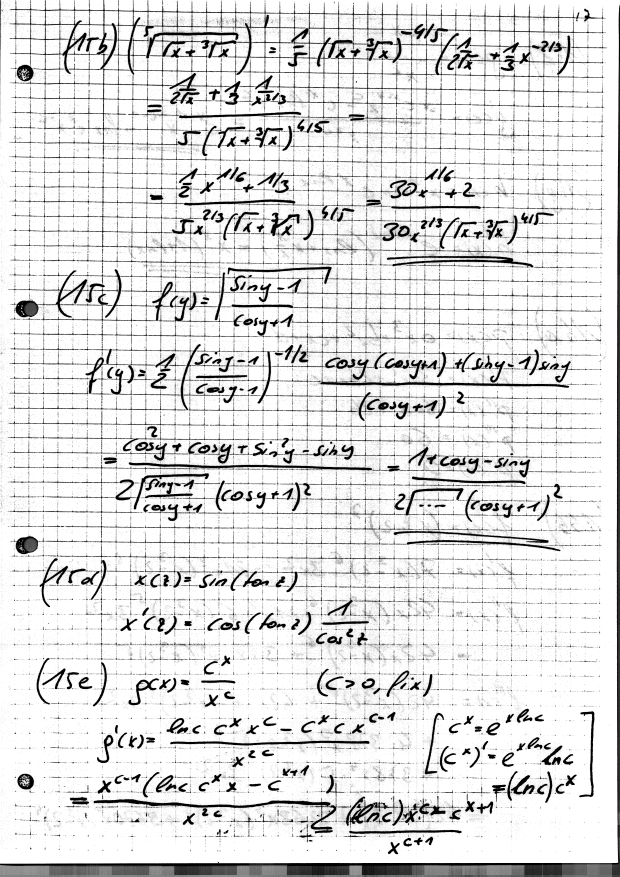 17
(15b) (⁵√(√x + ³√x))' = 1/5 (√x + ³√x)^(-4/5) (1/(2√x) + 1/3 x^(-2/3))
= (1/(2√x) + 1/3 1/x^(2/3)) / (5(√x + ³√x)^(4/5)) =
= (1/2 x^(1/6) + 1/3) / (5x^(2/3) (√x + ³√x)^(4/5)) = (30x^(1/6) + 2) / (30x^(2/3) (√x + ³√x)^(4/5))
(15c) f(y) = √((siny - 1)/(cosy + 1))
f'(y) = 1/2 ((siny - 1)/(cosy - 1))^(-1/2) (cosy (cosy + 1) + (siny - 1) siny) / (cosy + 1)^2
= (cos²y + cosy + sin²y - siny) / (2√((siny - 1)/(cosy + 1)) (cosy + 1)^2) = (1 + cosy - siny) / (2√(...) (cosy + 1)^2)
(15d) x(z) = sin(tan z)
x'(z) = cos(tan z) 1/cos²z
(15e) g(x) = c^x / x^c (c > 0, fix)
g'(x) = (lnc c^x x^c - c^x c x^(c-1)) / x^(2c) [c^x = e^(x lnc)
(c^x)' = e^(x lnc) lnc
= (lnc) c^x]
= x^(c-1) (lnc c^x x - c^(x+1)) / x^(2c)